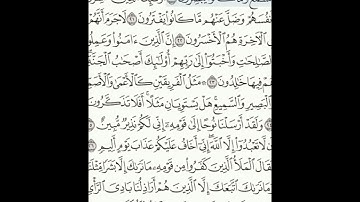 أَنفُسَهُمْ وَضَلَّ عَنْهُم مَّا كَانُوا۟ يَفْتَرُونَ ٢١ لَا جَرَمَ أَنَّهُمْ
فِى ٱلْءَاخِرَةِ هُمُ ٱلْأَخْسَرُونَ ٢٢ إِنَّ ٱلَّذِينَ ءَامَنُوا۟ وَعَمِلُوا۟
ٱلصَّٰلِحَٰتِ وَأَخْبَتُوٓا۟ إِلَىٰ رَبِّهِمْ أُو۟لَٰٓئِكَ أَصْحَٰبُ ٱلْجَنَّةِ
هُمْ فِيهَا خَٰلِدُونَ ٢٣ مَثَلُ ٱلْفَرِيقَيْنِ كَٱلْأَعْمَىٰ وَٱلْأَصَمِّ
وَٱلْبَصِيرِ وَٱلسَّمِيعِ هَلْ يَسْتَوِيَانِ مَثَلًا أَفَلَا تَذَكَّرُونَ
٢٤ وَلَقَدْ أَرْسَلْنَا نُوحًا إِلَىٰ قَوْمِهِۦٓ إِنِّى لَكُمْ نَذِيرٌ مُّبِينٌ
٢٥ أَن لَّا تَعْبُدُوٓا۟ إِلَّا ٱللَّهَ إِنِّىٓ أَخَافُ عَلَيْكُمْ عَذَابَ يَوْمٍ أَلِيمٍ ٢٦
فَقَالَ ٱلْمَلَأُ ٱلَّذِينَ كَفَرُوا۟ مِن قَوْمِهِۦ مَا نَرَىٰكَ إِلَّا بَشَرًا مِّثْلَنَا
وَمَا نَرَىٰكَ ٱتَّبَعَكَ إِلَّا ٱلَّذِينَ هُمْ أَرَاذِلُنَا بَادِىَ ٱلرَّأْىِ